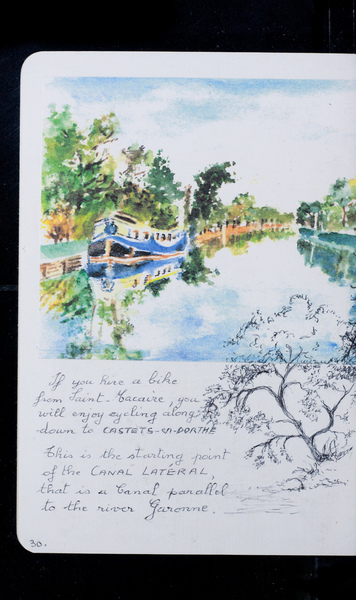 If you hire a bike
from Saint-Macaire, you
will enjoy cycling along
down to CASTETS-en-DORTHE
This is the starting point
of the CANAL LATÉRAL,
that is a Canal parallel
to the river Garonne.
30.